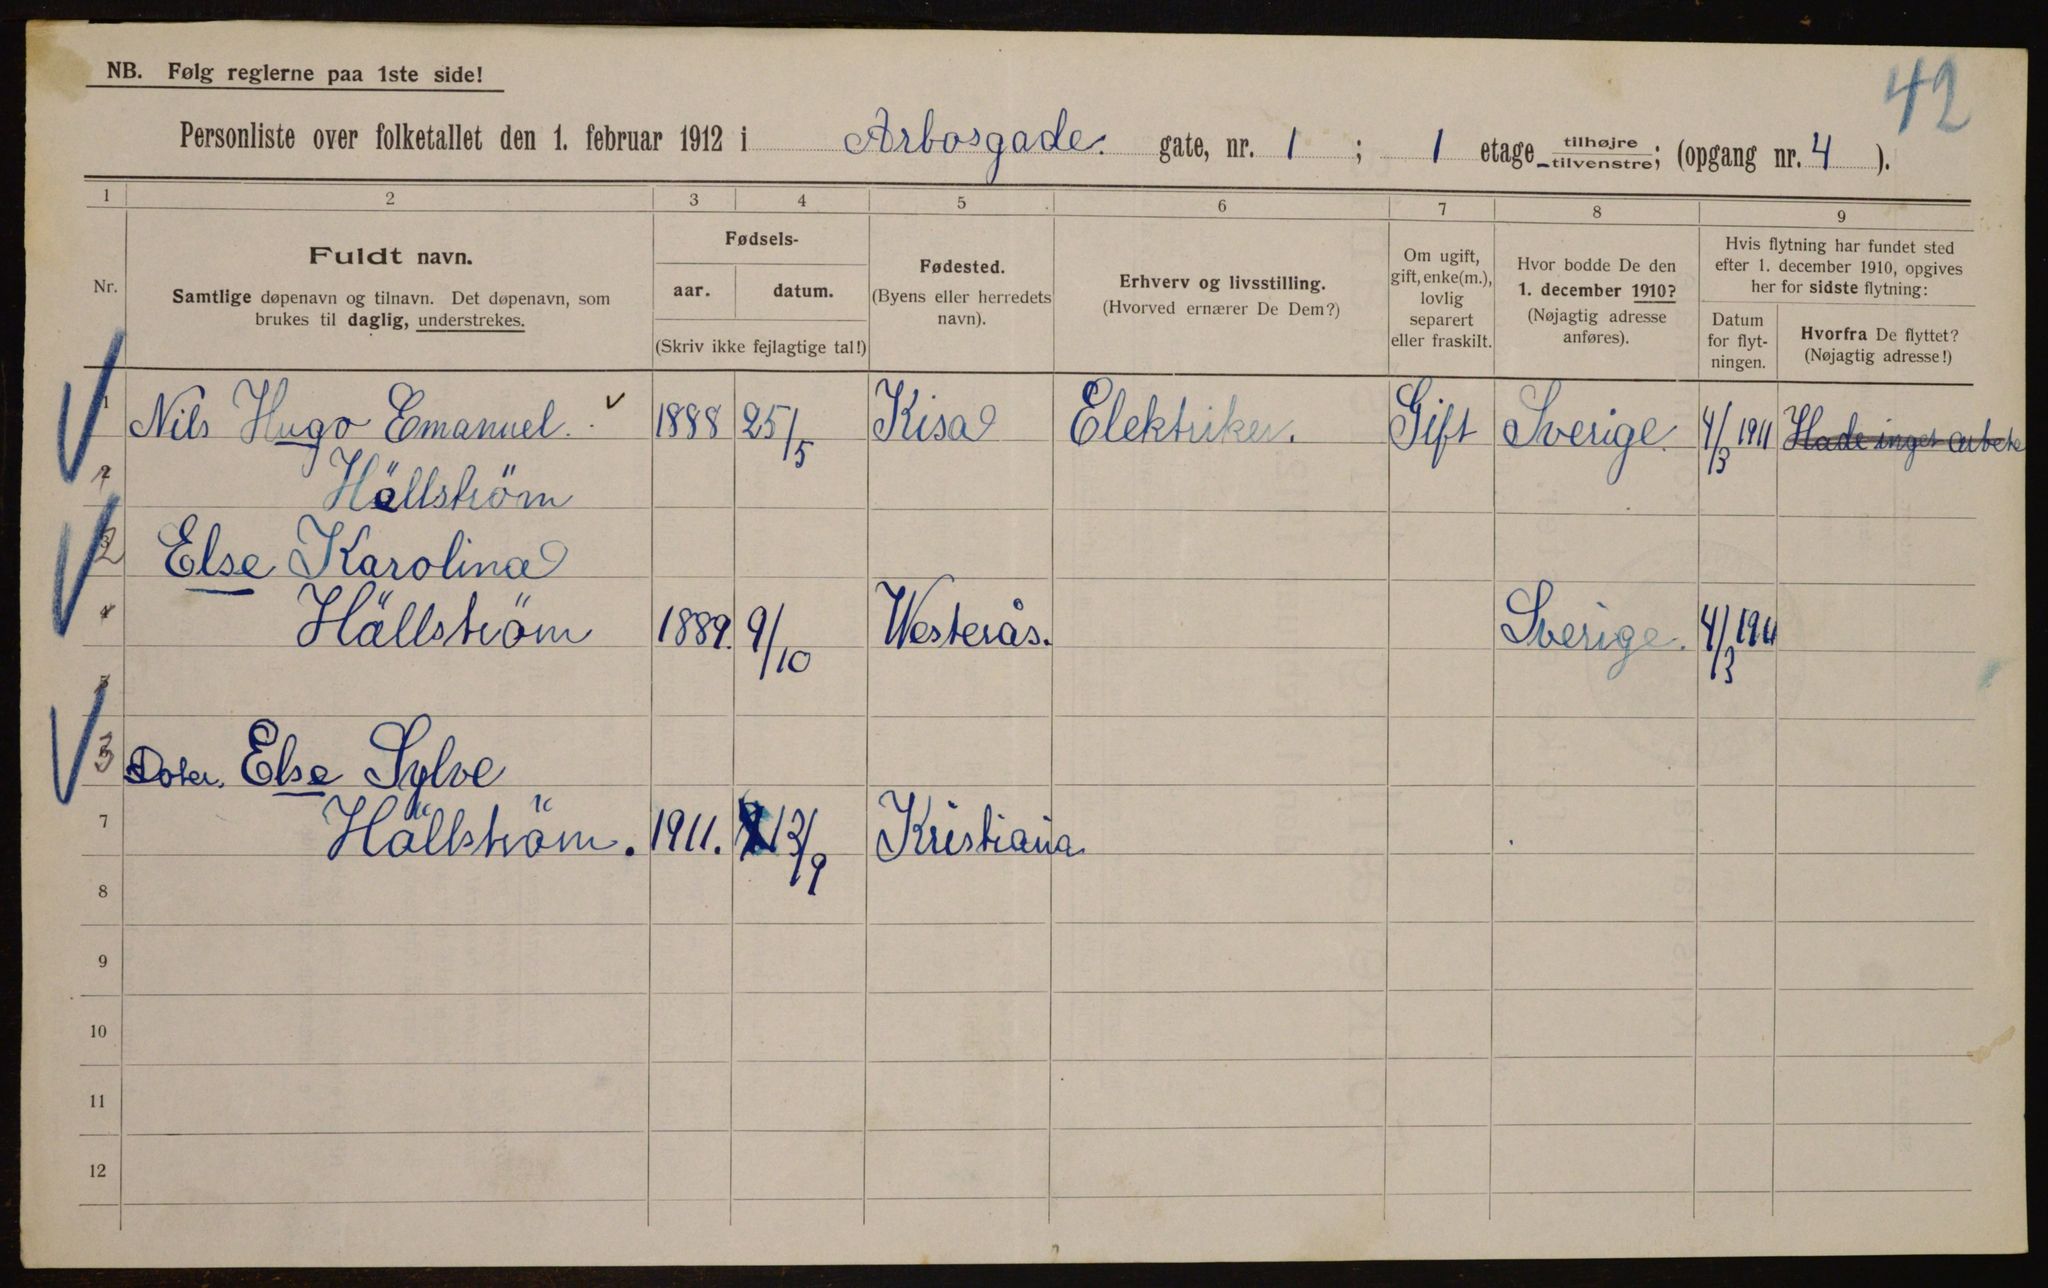 NB. Følg reglerne paa 1ste side!
42
Personliste over folketallet den 1. februar 1912 i Arbosgade. gate, nr. 1 ; 1 etage tilhøjre tilvenstre; (opgang nr. 4 ).
1 2 3 4 5 6 7 8 9
Nr.
Fuldt navn.
Samtlige døpenavn og tilnavn. Det døpenavn, som
brukes til daglig, understrekes.
Fødsels-
aar. datum.
(Skriv ikke fejlagtige tal!)
Fødested.
(Byens eller herredets
navn).
Erhverv og livsstilling.
(Hvorved ernærer De Dem?)
Om ugift,
gift, enke(m.),
lovlig
separert
eller fraskilt.
Hvor bodde De den
1. december 1910?
(Nøjagtig adresse
anføres).
Hvis flytning har fundet sted
efter 1. december 1910, opgives
her for sidste flytning:
Datum
for flyt-
ningen.
Hvorfra De flyttet?
(Nøjagtig adresse!)
1 Nils Hugo Emanuel. 1888 25/5 Kisa Elektriker. Gift Sverige. 4/3 1911 Hade inget arbete
Hällström
2 Else Karolina
4 Hällström 1889. 9/10 Westerås. Sverige. 4/3 1911
5
3 Doter. Else Sylve
7 Hällström. 1911. 13/9 Kristiania
8
9
10
11
12